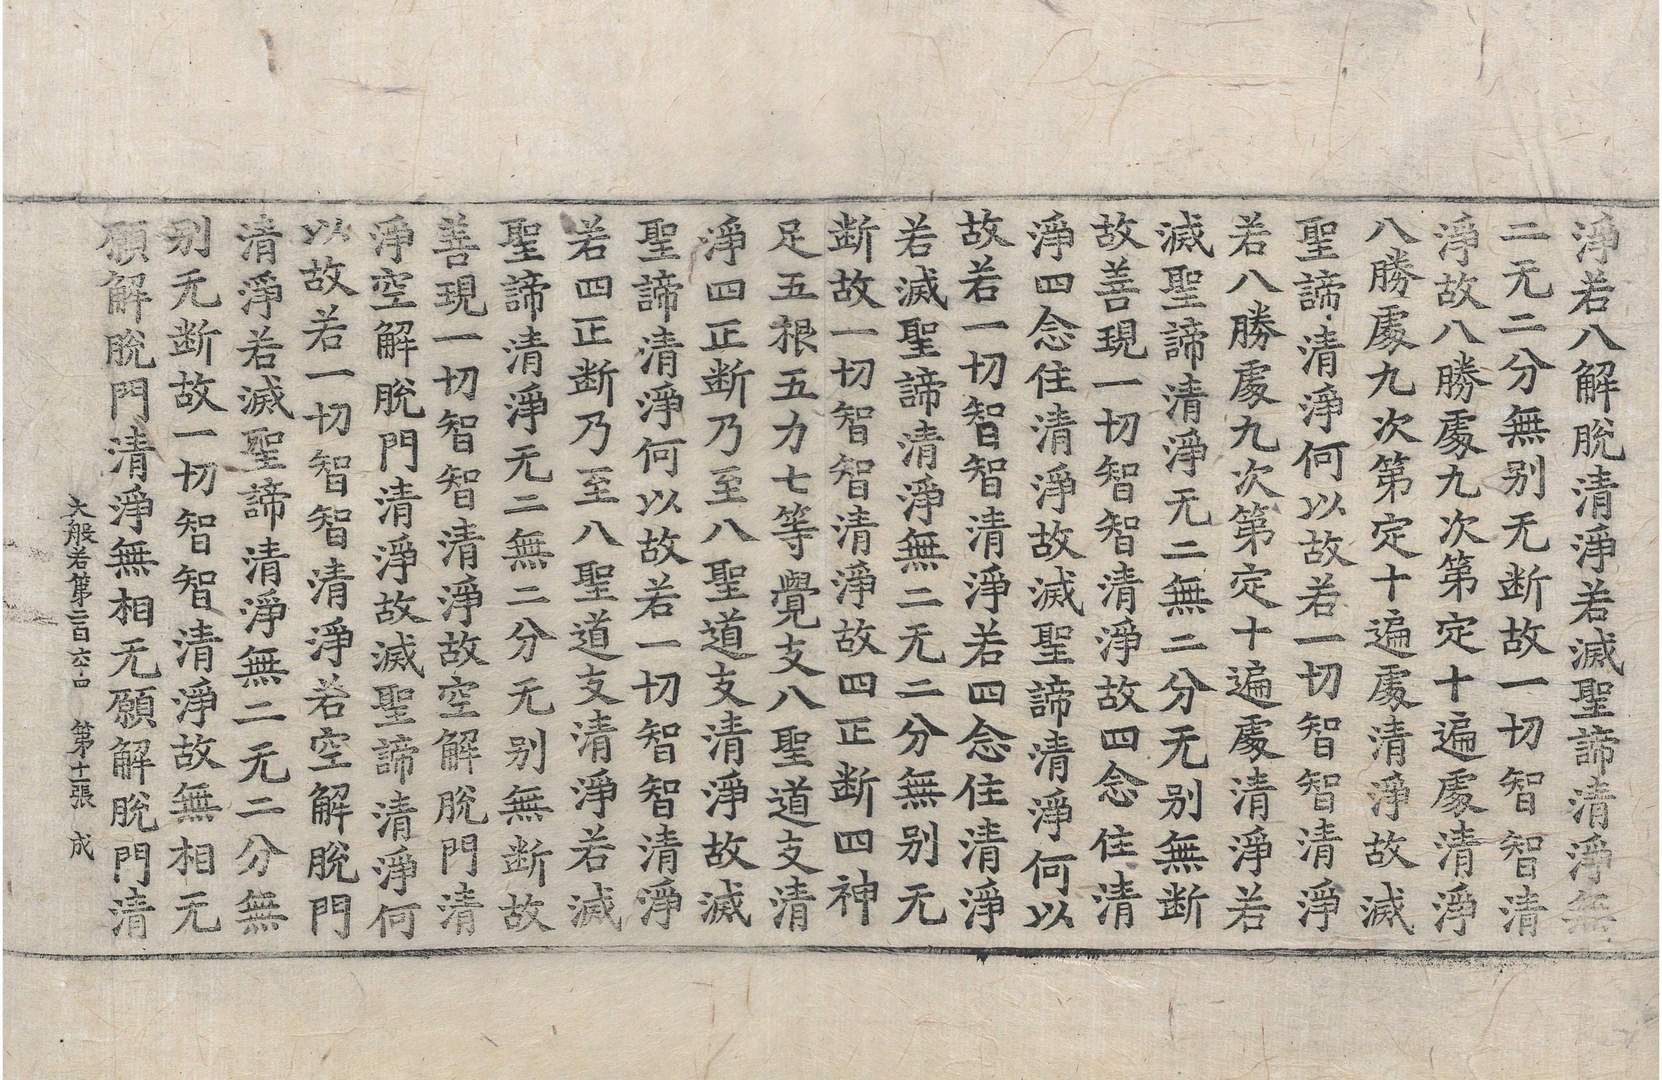 淨若八解脫清淨若滅聖諦清淨無
二无二分無别无断故一切智智清
淨故八勝處九次第定十遍處清淨
八勝處九次第定十遍處清淨故滅
聖諦清淨何以故若一切智智清淨
若八勝處九次第定十遍處清淨若
滅聖諦清淨无二無二分无别無断
故善現一切智智清淨故四念住清
淨四念住清淨故滅聖諦清淨何以
故若一切智智清淨若四念住清淨
若滅聖諦清淨無二无二分無别无
断故一切智智清淨故四正断四神
足五根五力七等覺支八聖道支清
淨四正断乃至八聖道支清淨故滅
聖諦清淨何以故若一切智智清淨
若四正断乃至八聖道支清淨若滅
聖諦清淨无二無二分无别無断故
善現一切智智清淨故空解脫門清
淨空解脫門清淨故滅聖諦清淨何
以故若一切智智清淨若空解脫門
清淨若滅聖諦清淨無二无二分無
别无断故一切智智清淨故無相无
願解脫門清淨無相无願解脫門清
大般若第二百六 第十一張 成